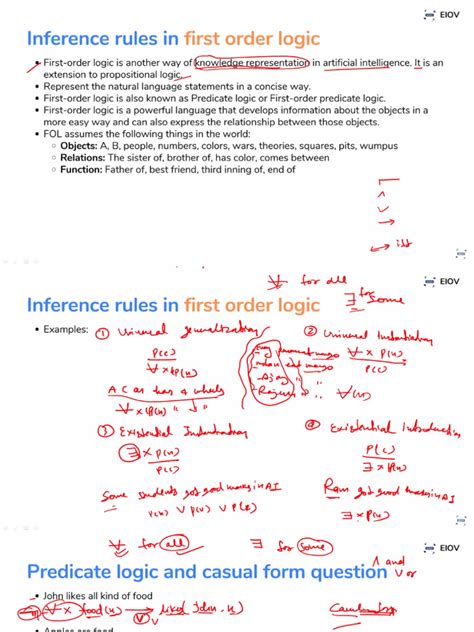 EIOV
Inference rules in first order logic
• First-order logic is another way of knowledge representation in artificial intelligence. It is an
extension to propositional logic.
• Represent the natural language statements in a concise way.
• First-order logic is also known as Predicate logic or First-order predicate logic.
• First-order logic is a powerful language that develops information about the objects in a
more easy way and can also express the relationship between those objects.
• FOL assumes the following things in the world:
○ Objects: A, B, people, numbers, colors, wars, theories, squares, pits, wumpus
○ Relations: The sister of, brother of, has color, comes between
○ Function: Father of, best friend, third inning of, end of
∧
∨
→
↔ iff
∀ for all
EIOV
∃ for some
Inference rules in first order logic
• Examples:
① Universal generalization
② Universal Instantiation
P(c)
∀x P(x)
∀ x P(x)
P(c)
③ Existential Instantiation
④ Existential introduction
∃ x P(x)
P(c)
P(c)
∃ x P(x)
Some students got good marks in AI
Ram got good marks in AI
P(x) ∨ P(y) ∨ P(z)
∃ x P(x)
∀ for all
∃ for some
EIOV
∧ and
∨ or
Predicate logic and casual form question
• John likes all kind of food
∀ x food(x) → likes(John, x)
• Apples are food